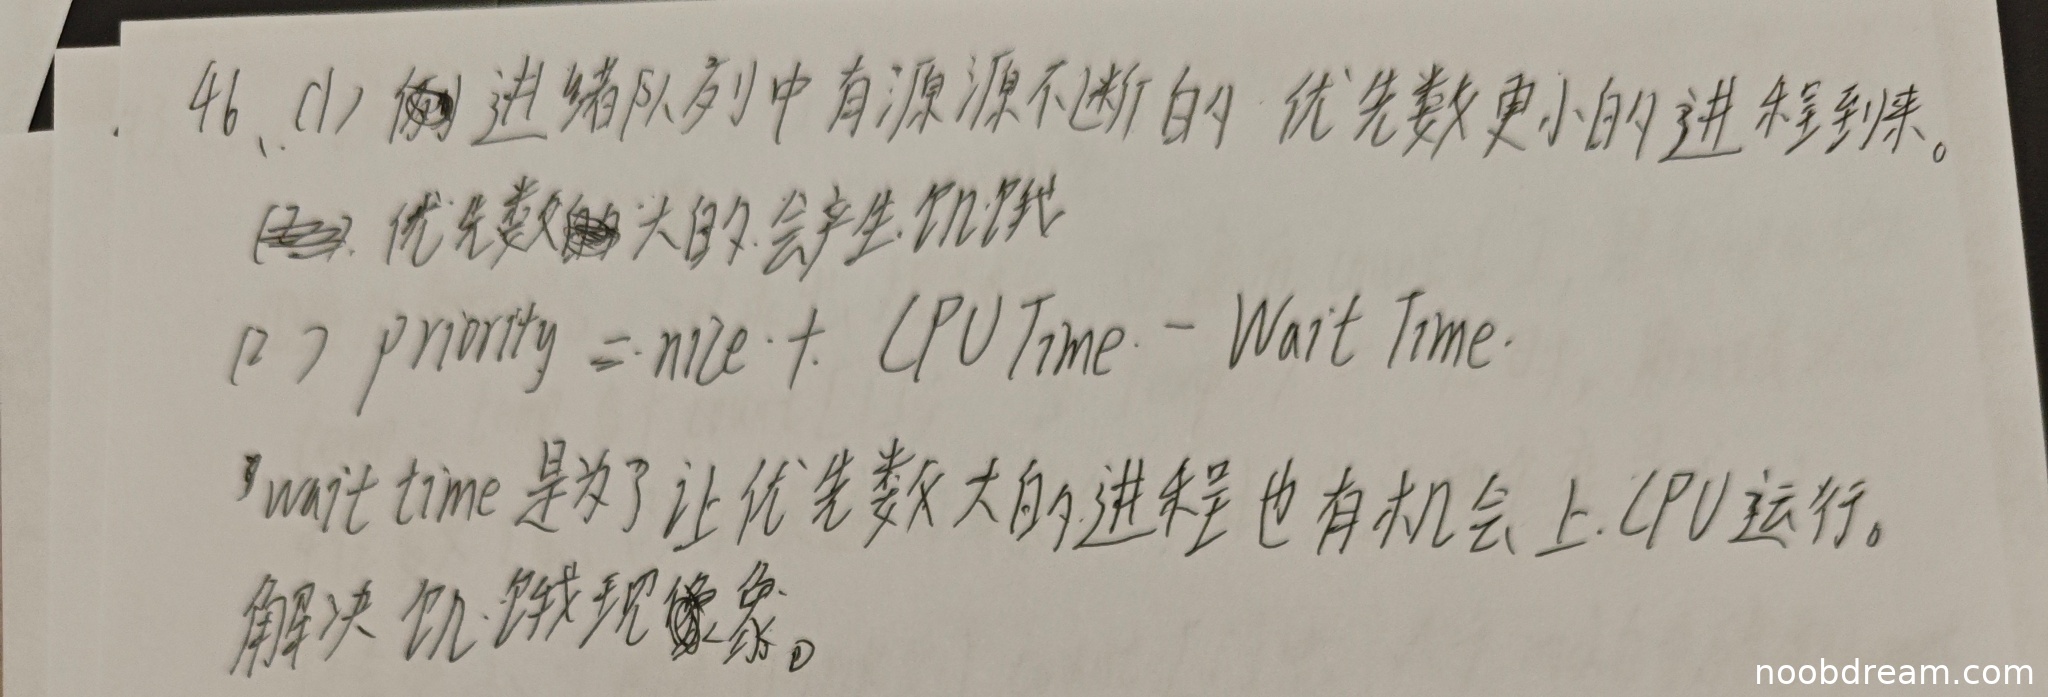 46、(1) 进绪队列中有源源不断的 优先数更小的进程到来。
优先数大的会产生饥饿
(2) priority = nice + CPU Time - Wait Time.
wait time 是为了让优先数大的进程也有机会上CPU运行。
解决饥饿现象。
noobdream.com